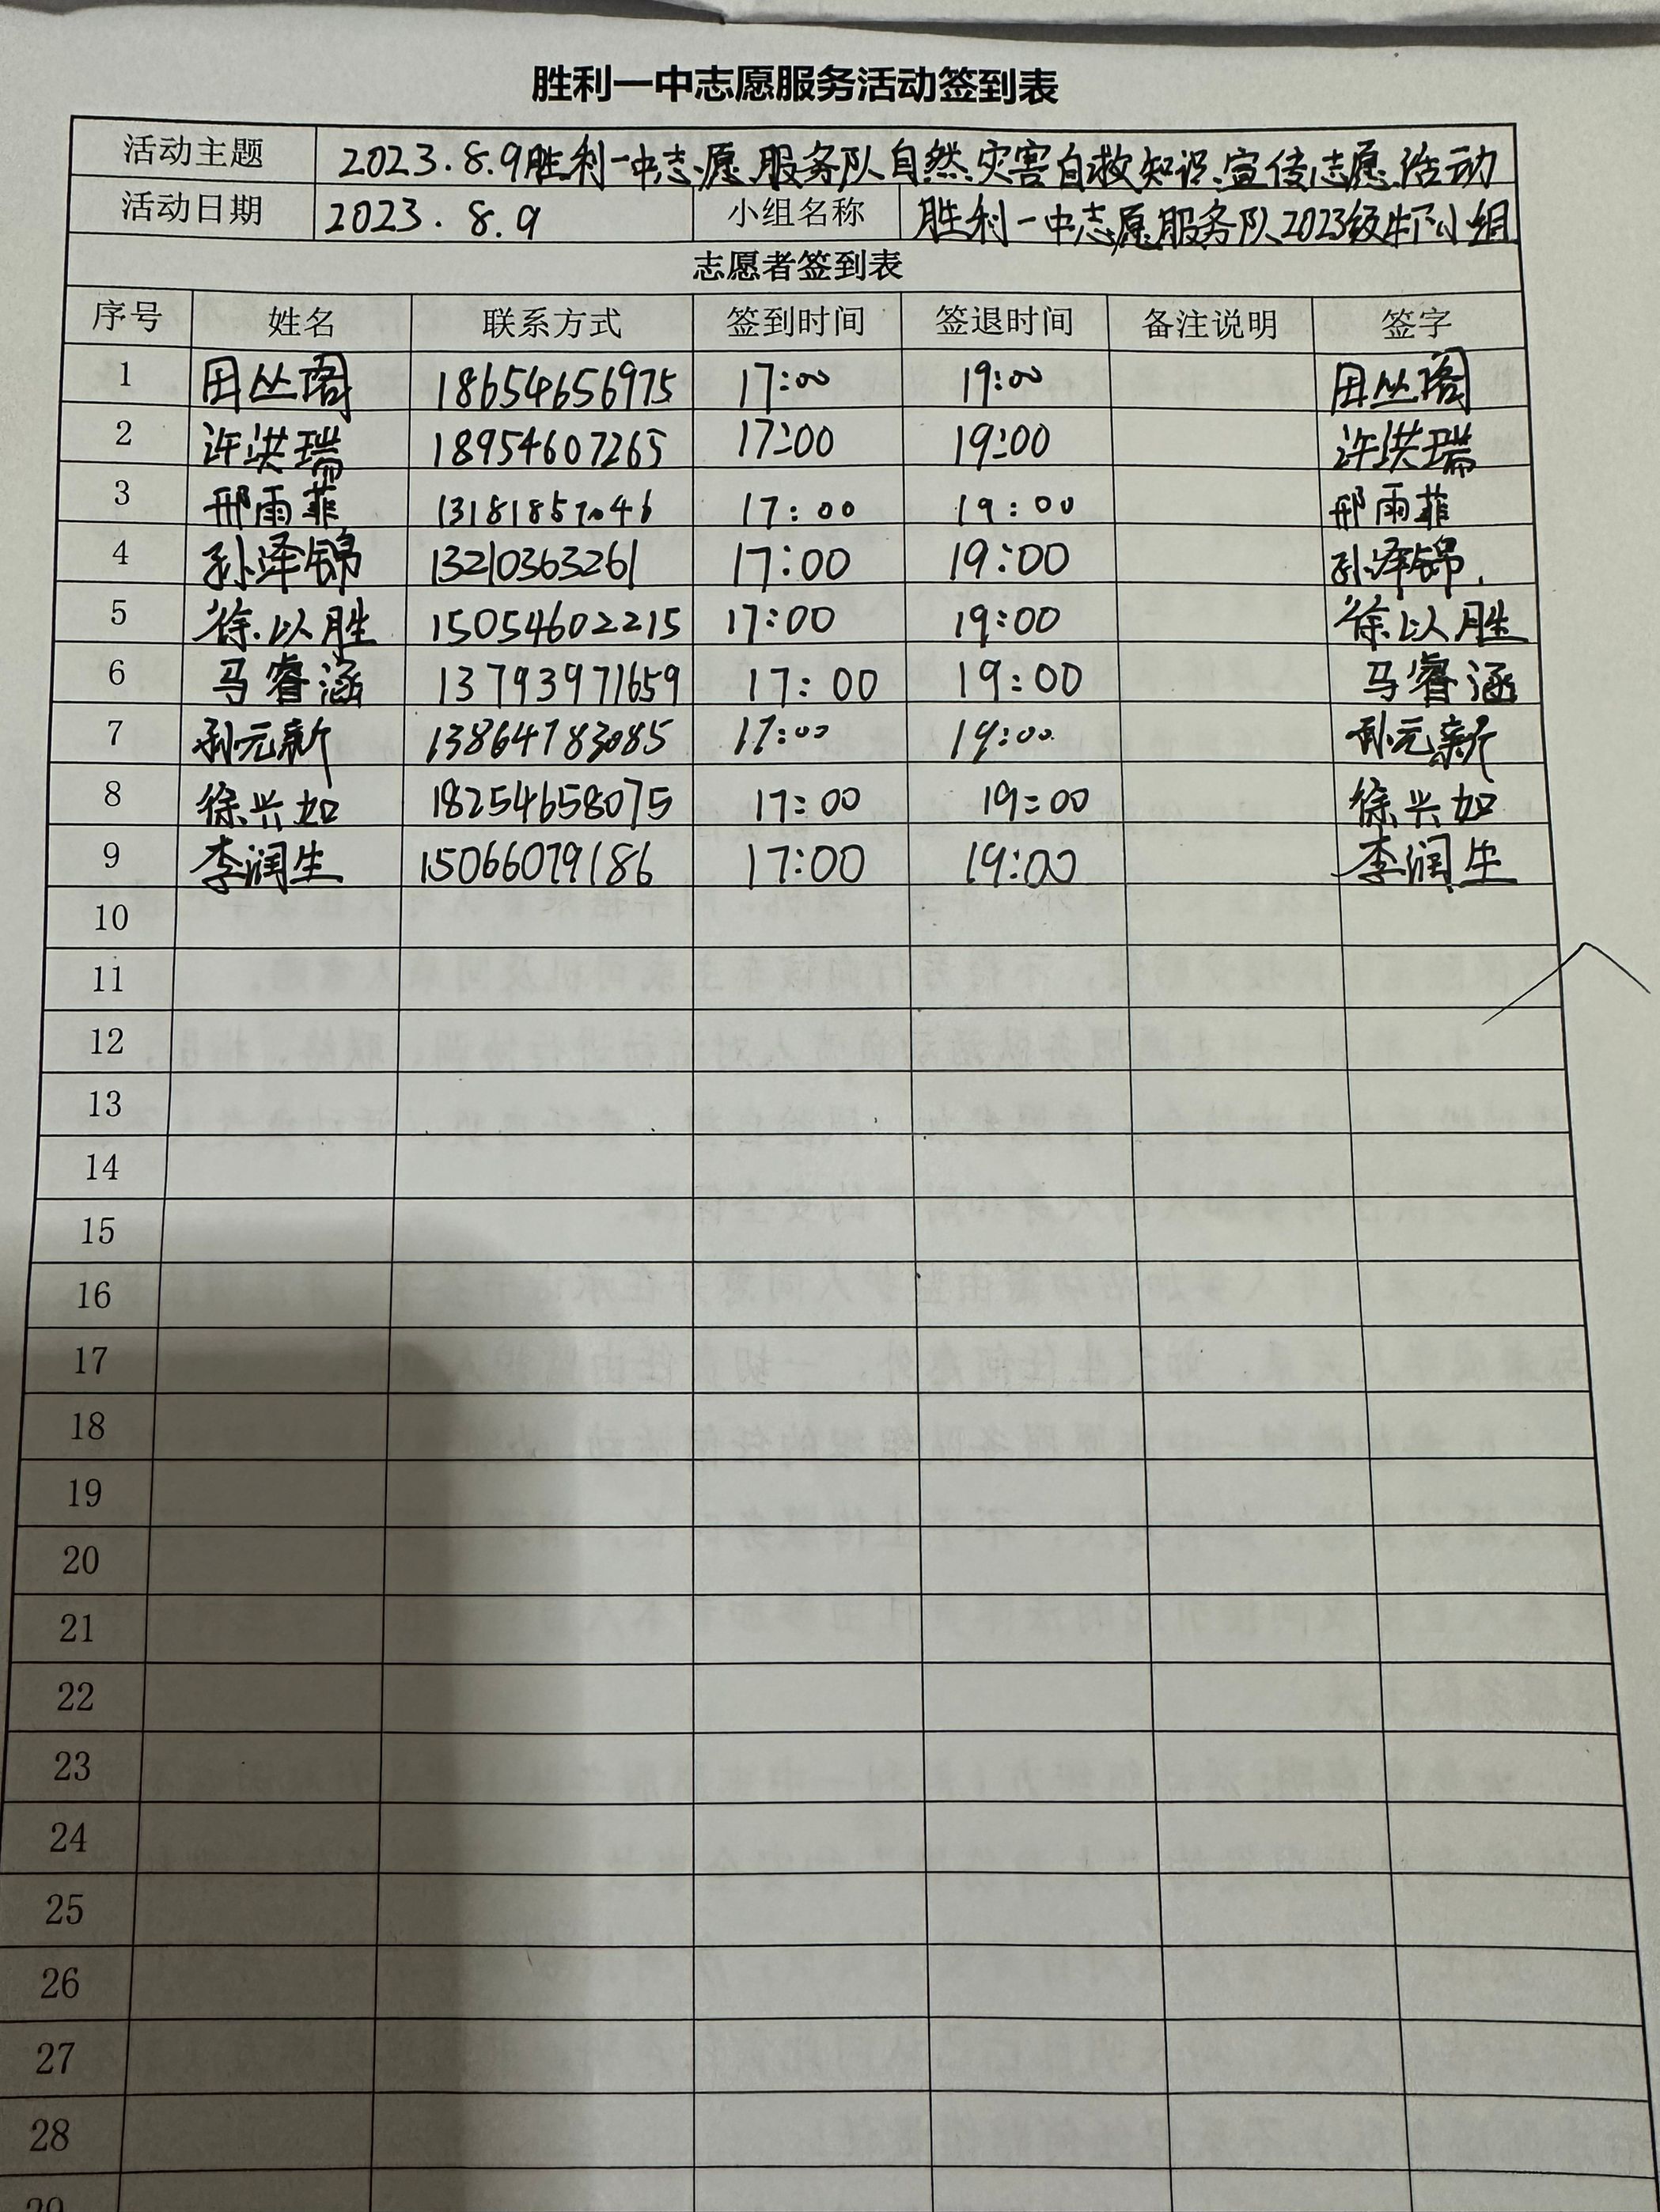 胜利一中志愿服务活动签到表
活动主题 2023.8.9胜利一中志愿服务队自然灾害自救知识宣传志愿活动
活动日期 2023.8.9 小组名称 胜利一中志愿服务队2023级 小组
志愿者签到表
序号 姓名 联系方式 签到时间 签退时间 备注说明 签字
1 田丛阁 18654656975 17:00 19:00 田丛阁
2 许洪瑞 18954607265 17:00 19:00 许洪瑞
3 邢雨菲 13181857046 17:00 19:00 邢雨菲
4 孙泽锦 13210363261 17:00 19:00 孙泽锦
5 徐以胜 15054602215 17:00 19:00 徐以胜
6 马睿涵 13793971659 17:00 19:00 马睿涵
7 孙元新 13864783085 17:00 19:00 孙元新
8 徐兴如 18254658075 17:00 19:00 徐兴如
9 李润生 15066079186 17:00 19:00 李润生
10
11
12
13
14
15
16
17
18
19
20
21
22
23
24
25
26
27
28
29